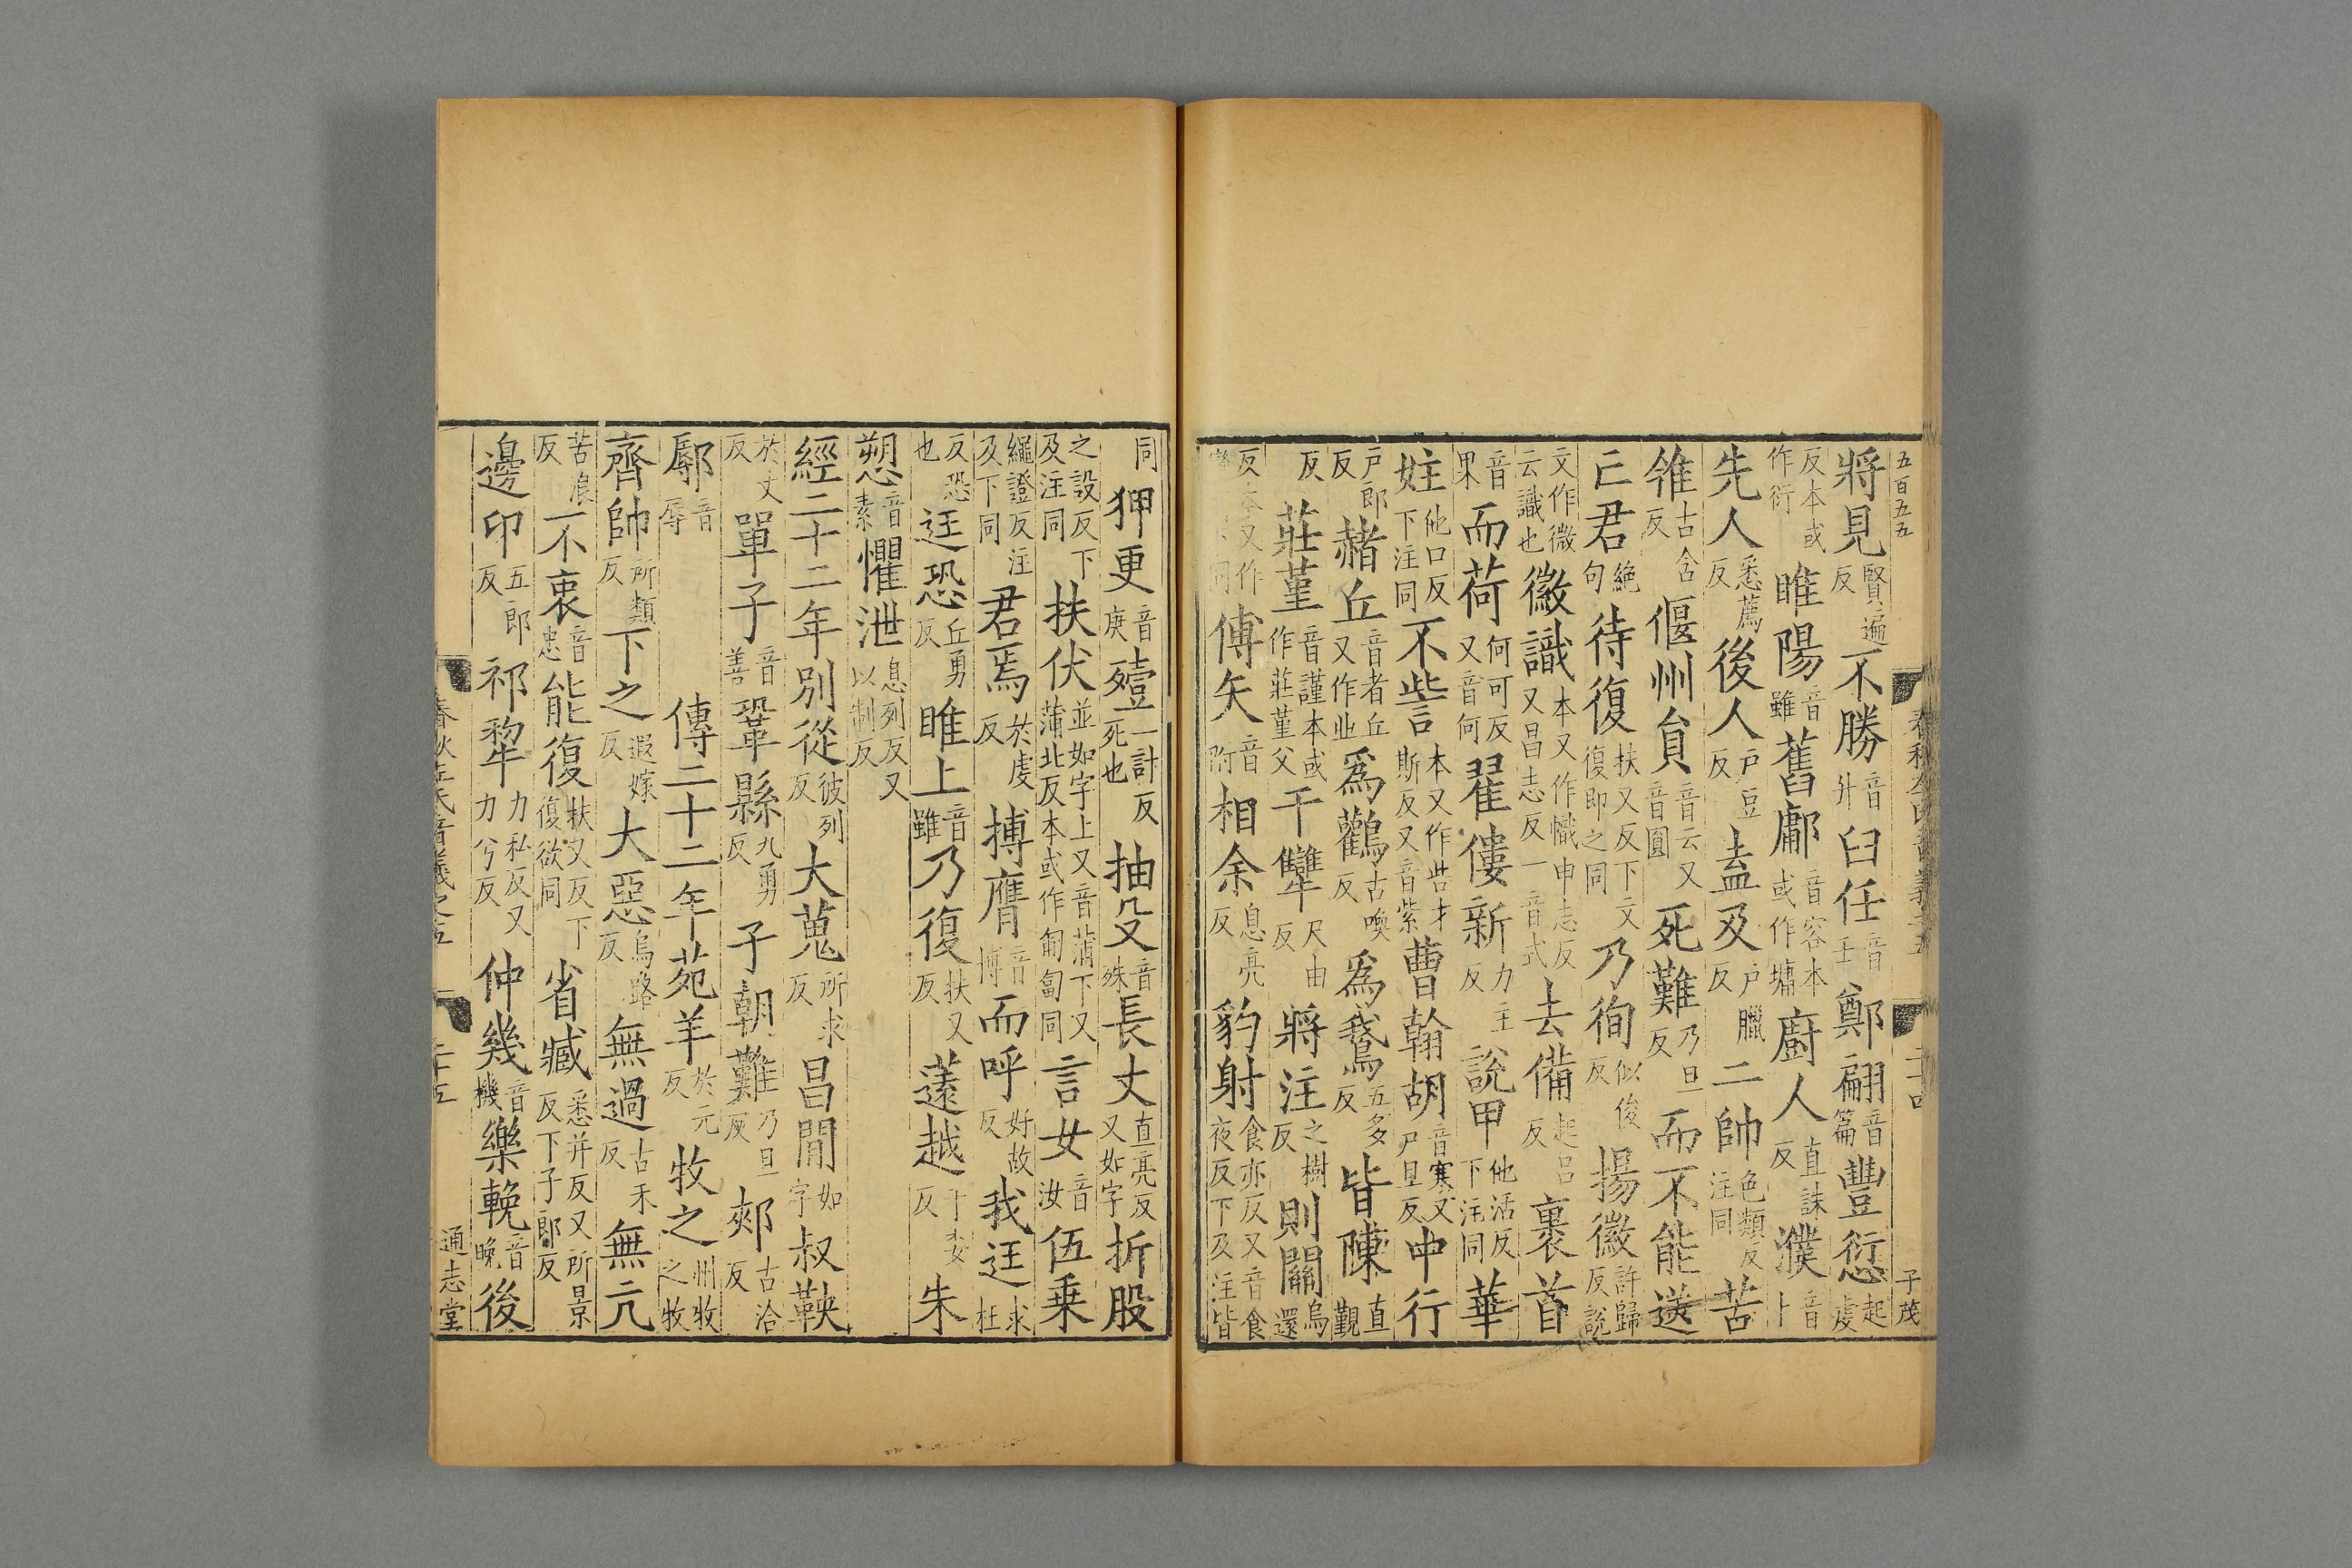 五百五五 春秋左氏音義之五 二十四 子茂
將見賢遍反不勝音升臼任音壬鄭翩音篇豐愆起虔
反本或作衍睢陽音雖舊鄘音容本或作墉廚人直誅反濮音卜
先人悉薦反後人戶豆反盍及戶臘反二帥色類反注同苦
雂古含反偃州員音云又音圓死難乃旦反而不能送
亡君絕句待復扶又反下文復即之同乃徇似俊反揚徽許歸反說
文作微云識也徽識本又作幟申志反又昌志反一音式去備起呂反裹首
音果而荷何可反又音何翟僂新力主反說甲他活反下注同華
妵他口反下注同不訾本又作呰才斯反又音紫曹翰胡音寒又戸旦反中行
戶郎反赭丘音者丘又作㐀爲鸛古喚反爲鵞五多反皆陳直覲
反莊堇音謹本或作莊堇父干犨尺由反將注之樹反則關烏還
反本又作彎同傅矢音附相余息亮反豹射食亦反又音食夜反下及注皆
同狎更音庚殪一計反死也抽殳音殊長丈直亮反又如字折股
之設反下及注同扶伏並如字上又音蒲下又蒲北反本或作匍匐同言女音汝伍乗
繩證反注及下同君焉於虔反搏膺音博而呼好故反我迋求枉
反恐也迋恐丘勇反睢上音雖乃復扶又反薳越于委反朱
愬音素懼泄息列反又以制反
經二十二年別從彼列反大蒐所求反昌閒如字叔鞅
於丈反單子音善鞏縣九勇反子朝難乃旦反郟古洽反
鄏音辱傳二十二年苑羊於元反牧之州牧之牧
齊帥所類反下之遐嫁反大惡烏路反無過古禾反無亢
苦浪反不衷音忠能復扶又反下復欲同省臧悉井反又所景反下子郎反
邊卬五郎反祁犂力私反又力兮反仲幾音機樂輓音晚後
春秋左氏音義之五 二十五 通志堂